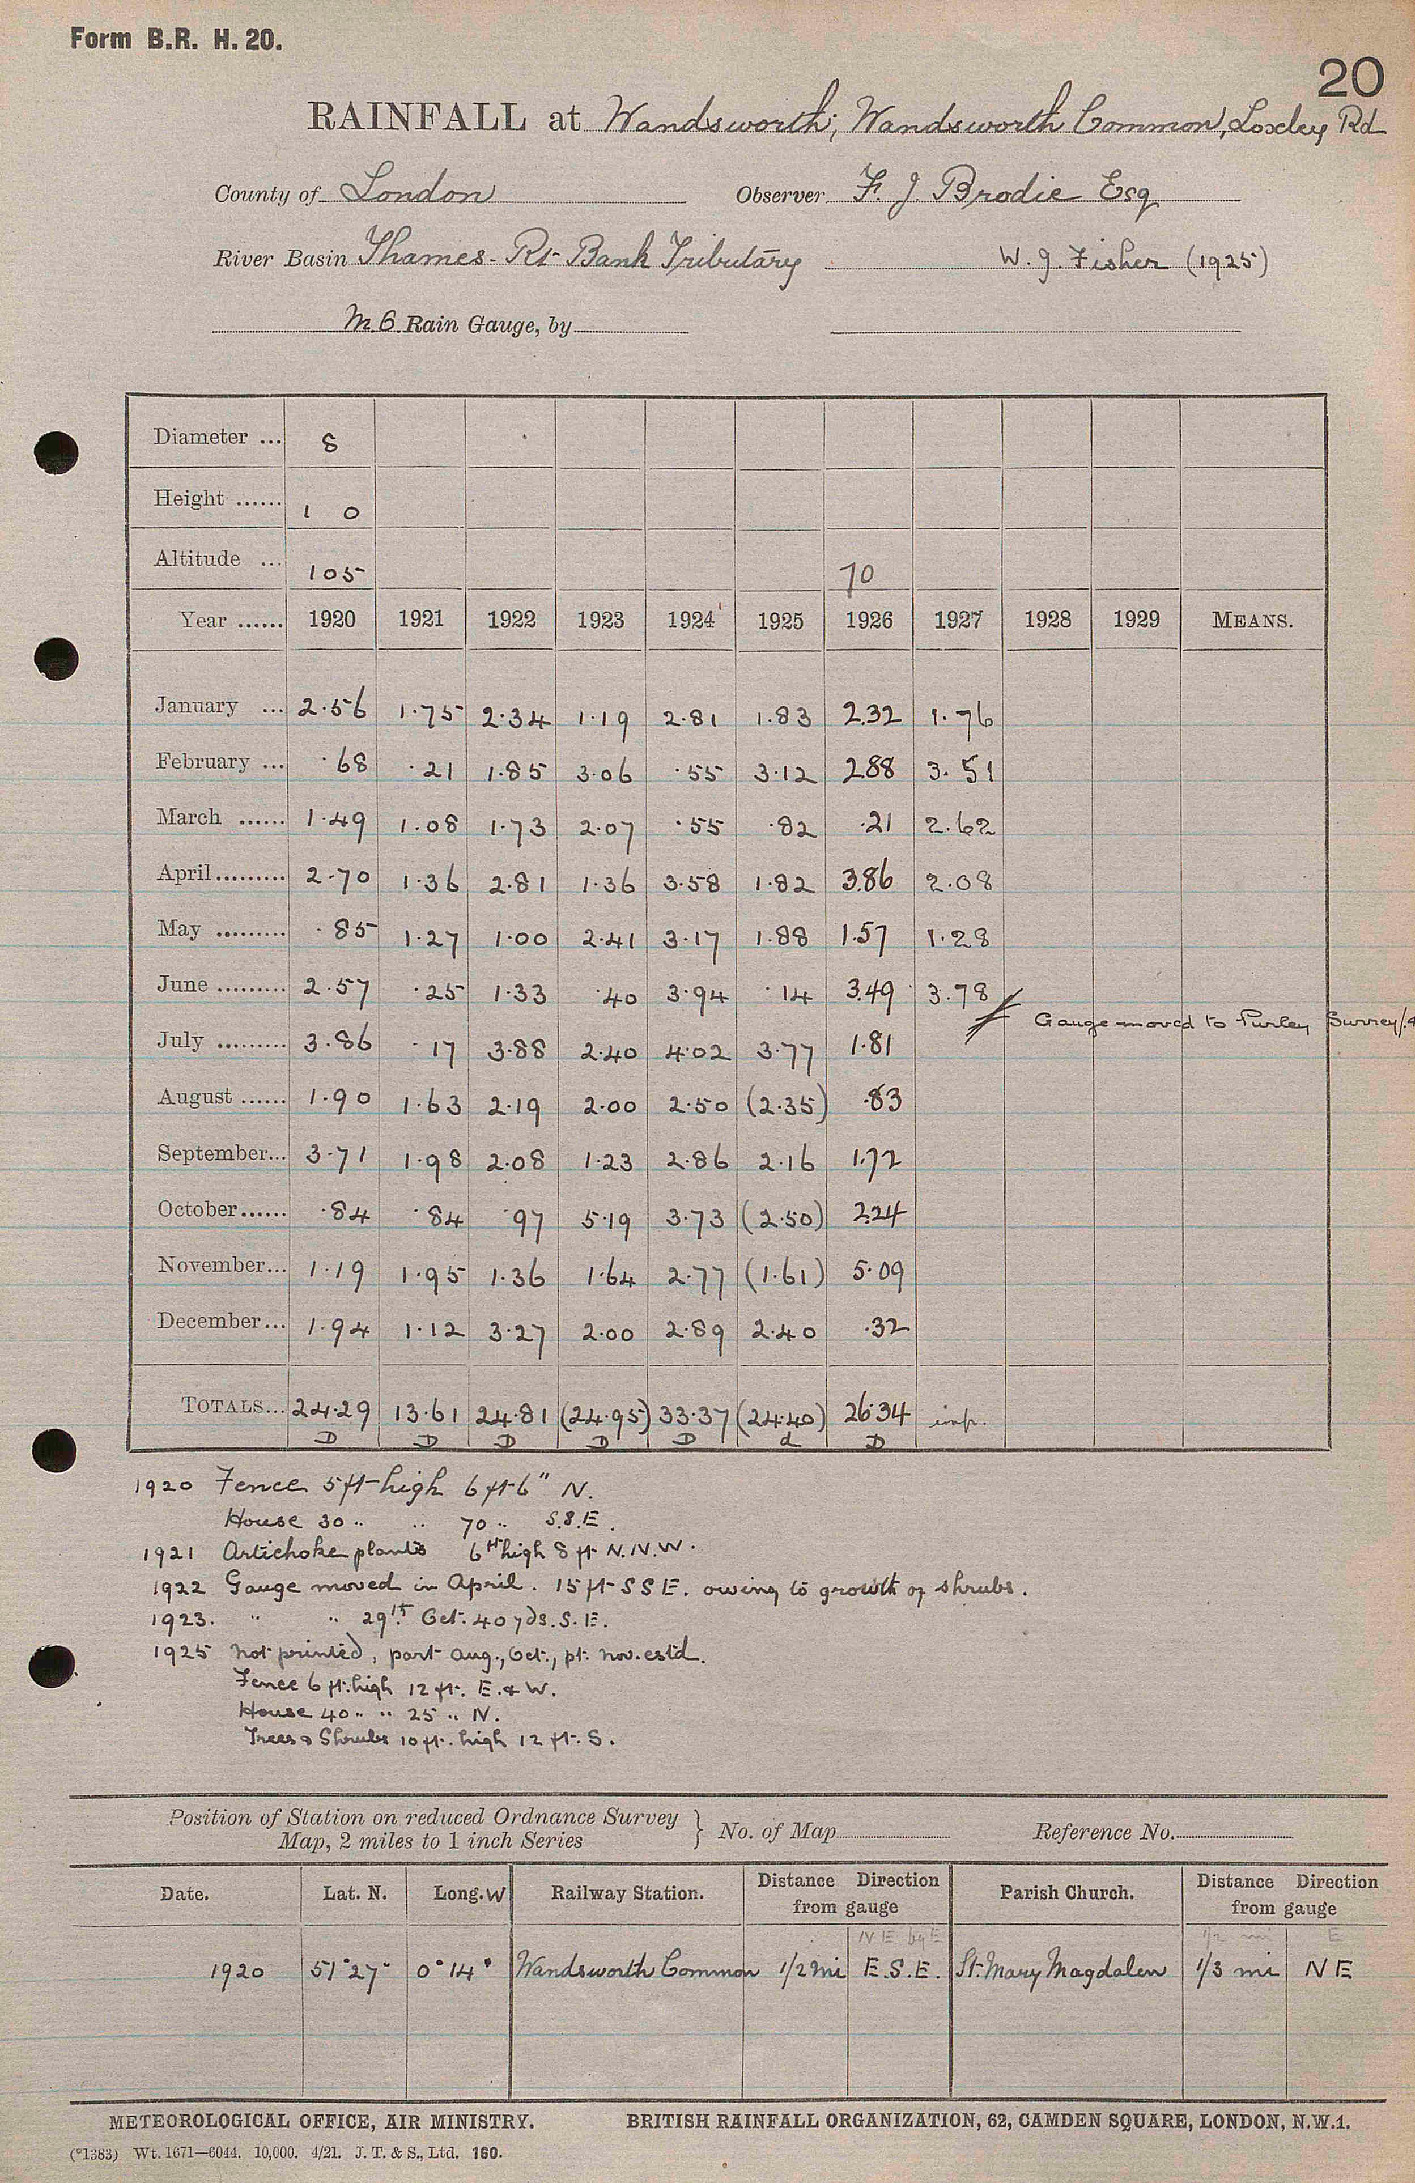 Form B.R. H. 20.
20
RAINFALL at Wandsworth; Wandsworth Common, Loxley Rd
County of London Observer F. J. Brodie Esq
River Basin Thames - Rt Bank Tributary W. J. Fisher (1925)
M 6 Rain Gauge, by
Diameter ... 8
Height ...... 1 0
Altitude ... 105 70
Year ...... 1920 1921 1922 1923 1924 1925 1926 1927 1928 1929 MEANS.
January ... 2.56 1.75 2.34 1.19 2.81 1.83 2.32 1.76
February ... .68 .21 1.85 3.06 .55 3.12 2.88 3.51
March ...... 1.49 1.08 1.73 2.07 .55 .82 .21 2.62
April......... 2.70 1.36 2.81 1.36 3.58 1.82 3.86 2.08
May ......... .85 1.27 1.00 2.41 3.17 1.88 1.57 1.28
June ......... 2.57 .25 1.33 .40 3.94 .14 3.49 3.78
Gauge moved to Purley Surrey
July ......... 3.86 .17 3.88 2.40 4.02 3.77 1.81
August ...... 1.90 1.63 2.19 2.00 2.50 (2.35) .83
September... 3.71 1.98 2.08 1.23 2.86 2.16 1.72
October...... .84 .84 .97 5.19 3.73 (2.50) 2.24
November... 1.19 1.95 1.36 1.64 2.77 (1.61) 5.09
December... 1.94 1.12 3.27 2.00 2.89 2.40 .32
TOTALS... 24.29 13.61 24.81 (24.95) 33.37 (24.40) 26.34 inp.
D D D D D d D
1920 Fence 5 ft high 6 ft 6" N.
House 30 " " 70 " S.S.E.
1921 Artichoke plants 6 ft high 8 ft N.N.W.
1922 Gauge moved in April. 15 ft SSE. owing to growth of shrubs.
1923. " " 29th Oct. 40 yds. S.E.
1925 Not printed, part Aug., Oct., pt. Nov. estd.
Fence 6 ft. high 12 ft. E. & W.
House 40 " " 25 " N.
Trees & Shrubs 10 ft. high 12 ft. S.
Position of Station on reduced Ordnance Survey
Map, 2 miles to 1 inch Series } No. of Map Reference No.
Date. Lat. N. Long. W Railway Station. Distance Direction from gauge Parish Church. Distance Direction from gauge
NE by E 1/2 mi E
1920 51°27' 0°14' Wandsworth Common 1/2 mi E.S.E. St. Mary Magdalen 1/3 mi NE
METEOROLOGICAL OFFICE, AIR MINISTRY. BRITISH RAINFALL ORGANIZATION, 62, CAMDEN SQUARE, LONDON, N.W.1.
(*1383) Wt. 1671—6044. 10,000. 4/21. J. T. & S., Ltd. 160.